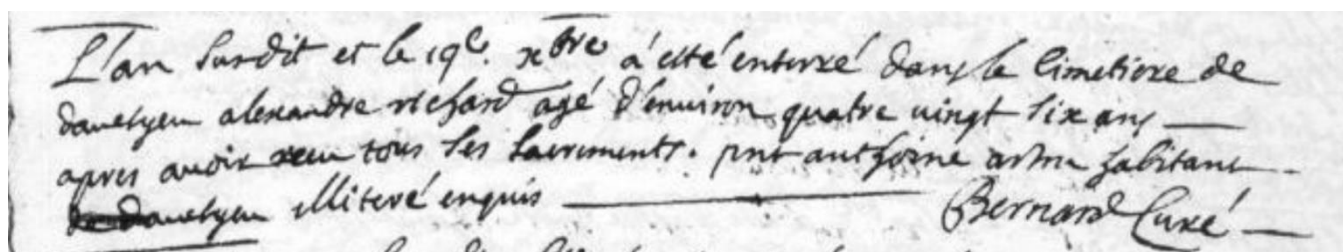 L'an susdit et le 19e. xbre à esté enterré dans le cimetiere de
alexandre richard agé d'environ quatre vingt six ans
apres avoir receu tous les sacrements. pnt anthoine habitant
illiteré enquis Bernard Curé